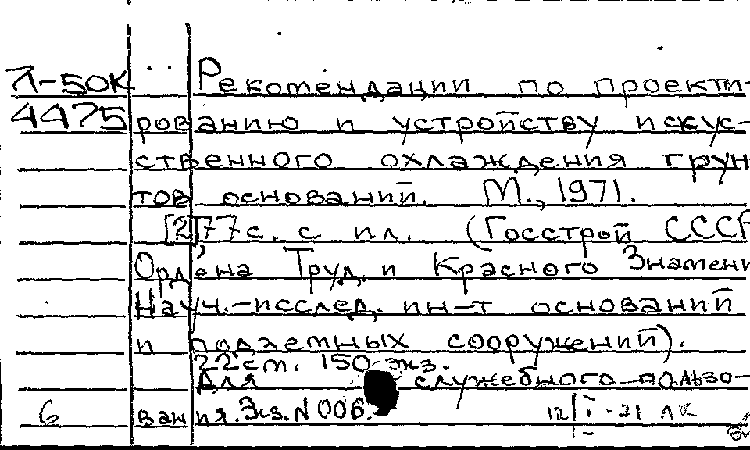 Л-50К Рекомендации по проекти-
4475 рованию и устройству искус-
ственного охлаждения грун
тов оснований. М., 1971.
[2], 77 с. с ил. (Госстрой СССР
Ордена Труд. и Красного Знамени
Науч.-исслед. ин-т оснований
и подземных сооружений).
22 см. 150 экз.
Для служебного пользо-
6 вания. Экз. N 006.